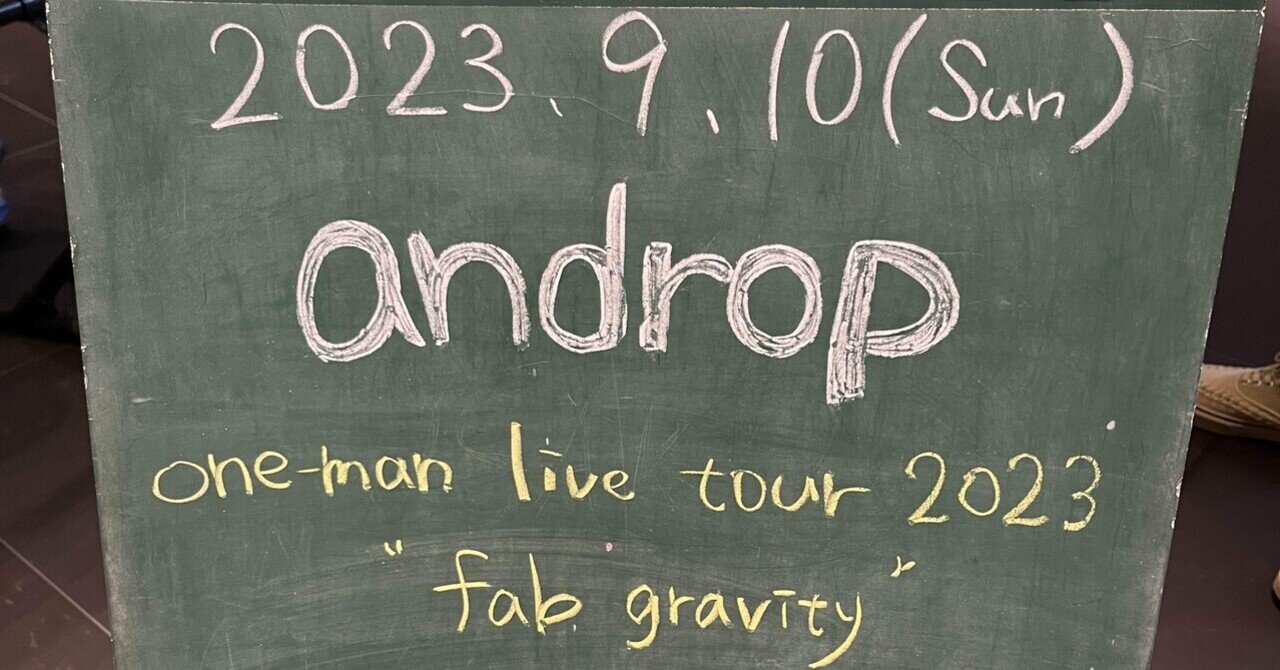 2023.9.10(Sun)
androp
one-man live tour 2023
"fab gravity"